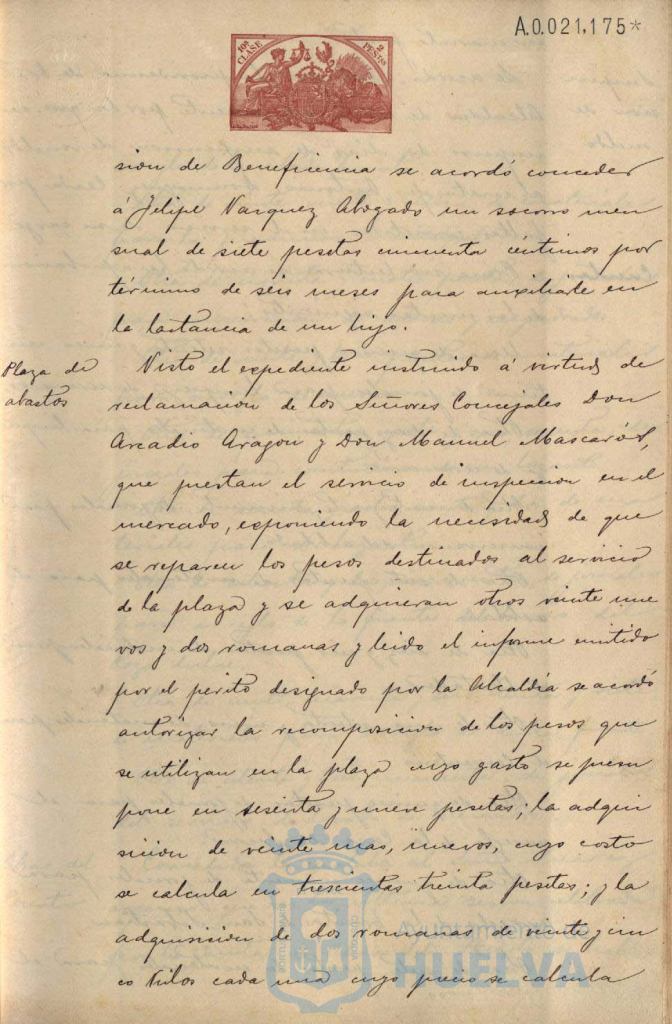 A.0.021,175*
10ª CLASE 2 PESETAS
sion de Beneficencia se acordó conceder
á Felipe Vazquez Abogado un socorro men
sual de siete pesetas cincuenta céntimos por
término de séis meses para auxiliarle en
la lactancia de un hijo.
Plaza de
abastos
Visto el expediente instruido á virtud de
reclamacion de los Señores Concejales Don
Arcadio Aragon y Don Manuel Mascarós,
que prestan el servicio de inspeccion en el
mercado, exponiendo la necesidad de que
se reparen los pesos destinados al servicio
de la plaza y se adquieran otros veinte nue
vos y dos romanas y leido el informe emitido
por el périto designado por la Alcaldía se acordó
autorizar la recomposicion de los pesos que
se utilizan en la plaza cuyo gasto se presu
pone en sesenta y nueve pesetas; la adqui
sicion de veinte mas, nuevos, cuyo costo
se calcula en trescientas treinta pesetas; y la
adquisicion de dos romanas de veinte y cin
co kilos cada una cuyo precio se calcula
Ayuntamiento de
HUELVA